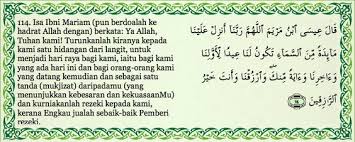 114. Isa Ibni Mariam (pun berdoalah ke
hadrat Allah dengan) berkata: Ya Allah,
Tuhan kami! Turunkanlah kiranya kepada
kami satu hidangan dari langit, untuk
menjadi hari raya bagi kami, iaitu bagi kami
yang ada hari ini dan bagi orang-orang kami
yang datang kemudian dan sebagai satu
tanda (mukjizat) daripadamu (yang
menunjukkan kebesaran dan kekuasaanMu)
dan kurniakanlah rezeki kepada kami,
kerana Engkau jualah sebaik-baik Pemberi
rezeki.
قَالَ عِيسَى ٱبْنُ مَرْيَمَ ٱللَّهُمَّ رَبَّنَآ أَنزِلْ عَلَيْنَا
مَآئِدَةً مِّنَ ٱلسَّمَآءِ تَكُونُ لَنَا عِيدًا لِّأَوَّلِنَا
وَءَاخِرِنَا وَءَايَةً مِّنكَ ۖ وَٱرْزُقْنَا وَأَنتَ خَيْرُ
ٱلرَّٰزِقِينَ